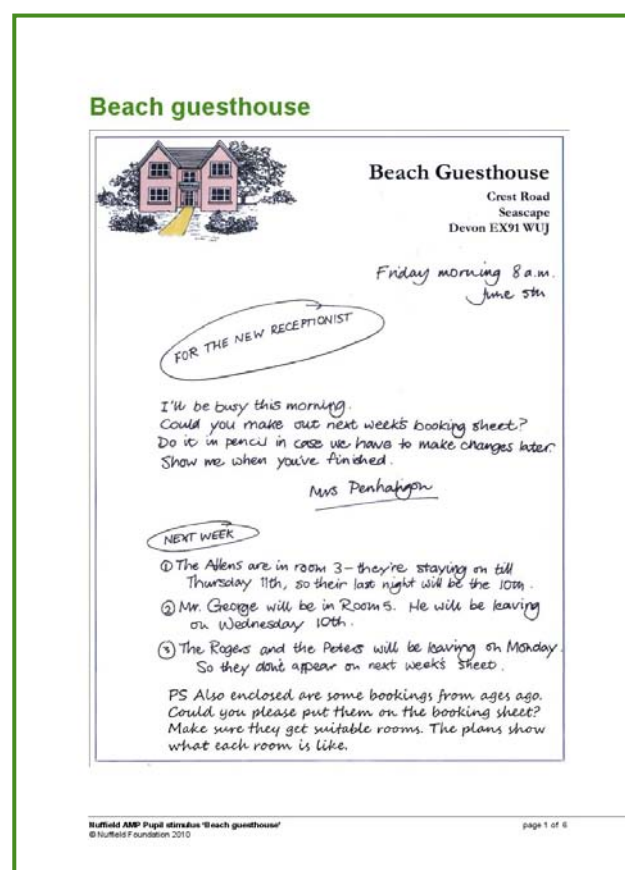 Beach guesthouse
Beach Guesthouse
Crest Road
Seascape
Devon EX91 WUJ
Friday morning 8 a.m.
June 5th
FOR THE NEW RECEPTIONIST
I'll be busy this morning.
Could you make out next week's booking sheet?
Do it in pencil in case we have to make changes later.
Show me when you've finished.
Mrs Penhaligon
NEXT WEEK
① The Allens are in room 3 – they're staying on till
Thursday 11th, so their last night will be the 10th.
② Mr. George will be in Room 5. He will be leaving
on Wednesday 10th.
③ The Rogers and the Peters will be leaving on Monday.
So they don't appear on next week's sheet.
PS Also enclosed are some bookings from ages ago.
Could you please put them on the booking sheet?
Make sure they get suitable rooms. The plans show
what each room is like.
Nuffield AMP Pupil stimulus 'Beach guesthouse' page 1 of 6
© Nuffield Foundation 2010